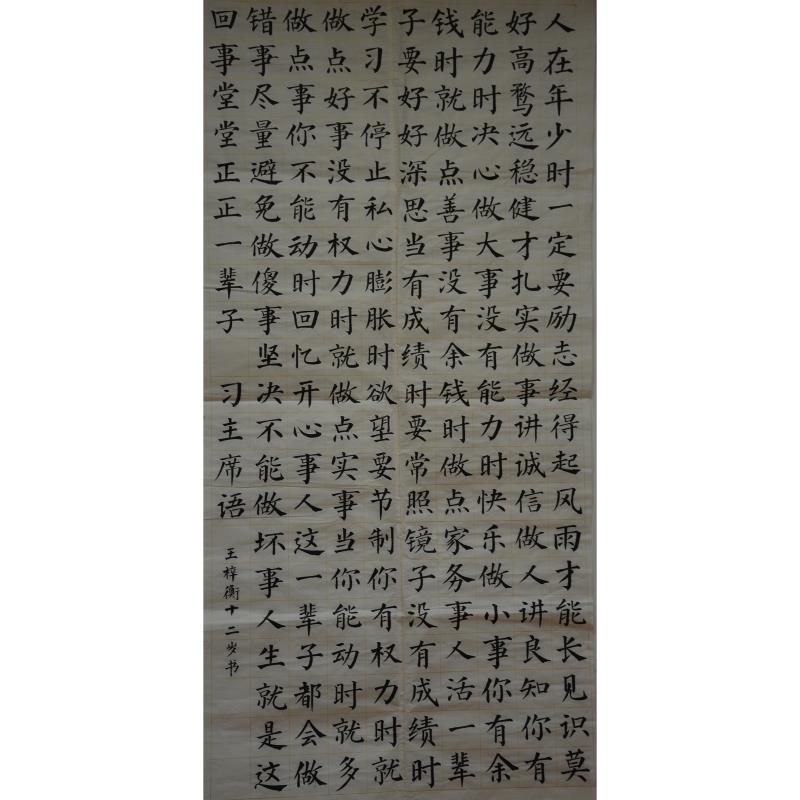 人在年少时一定要励志经得起风雨才能长见识莫
好高骛远稳健才扎实做事讲诚信做人讲良知你有
能力时决心做大事没有能力时快乐做小事你有余
钱时就做点善事没有余钱时做点家务事人活一辈
子要好好深思当有成绩时要常照镜子没有成绩时
学习不停止私心膨胀时欲望要节制你有权力时就
做点好事没有权力时就做点实事当你能动时就多
做点事你不能动时回忆开心事人这一辈子都会做
错事尽量避免做傻事坚决不能做坏事人生就是这
回事堂堂正正一辈子 习主席语
王梓衡十二岁书